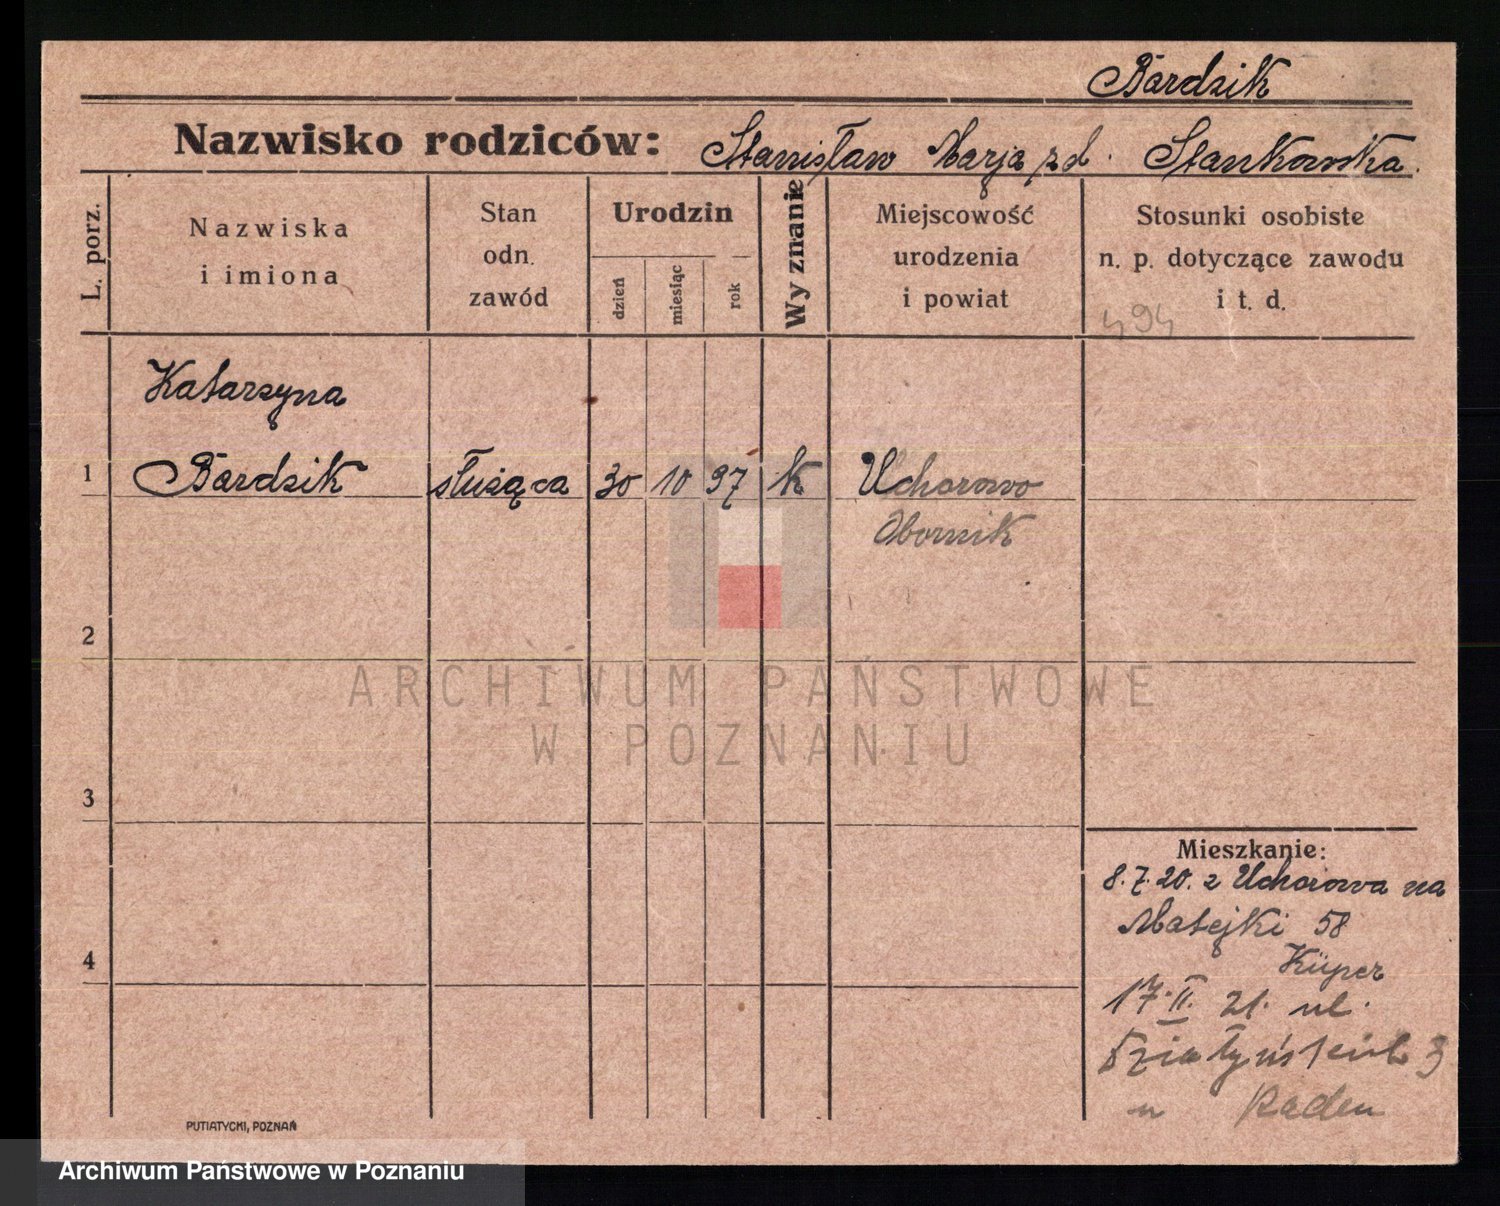 Bardzik
Nazwisko rodziców: Stanisław Marja z d. Stankowska.
L. porz.
Nazwiska
i imiona
Stan
odn.
zawód
Urodzin
dzień
miesiąc
rok
Wyznanie
Miejscowość
urodzenia
i powiat
Stosunki osobiste
n. p. dotyczące zawodu
i t. d.
494
Katarzyna
1 Bardzik służąca 30 10 97 k Uchorowo
Obornik
2
ARCHIWUM PAŃSTWOWE
W POZNANIU
3
Mieszkanie:
8.7.20. z Uchorowa na
Matejki 58
Küper
4
17.II. 21. ul.
Działyńskich 3
u Raden
PUTIATYCKI, POZNAŃ
Archiwum Państwowe w Poznaniu